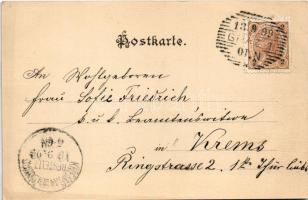 Postkarte.
An Wohlgeboren
Frau Sofie Friedrich
k. u. k. Beamtenswitwe
in Krems
Ringstrasse 2, 1te Thür links